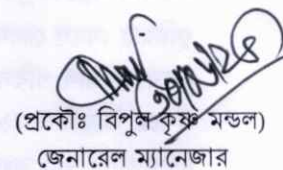 (প্রকৌঃ বিপুল কৃষ্ণ মন্ডল)
জেনারেল ম্যানেজার